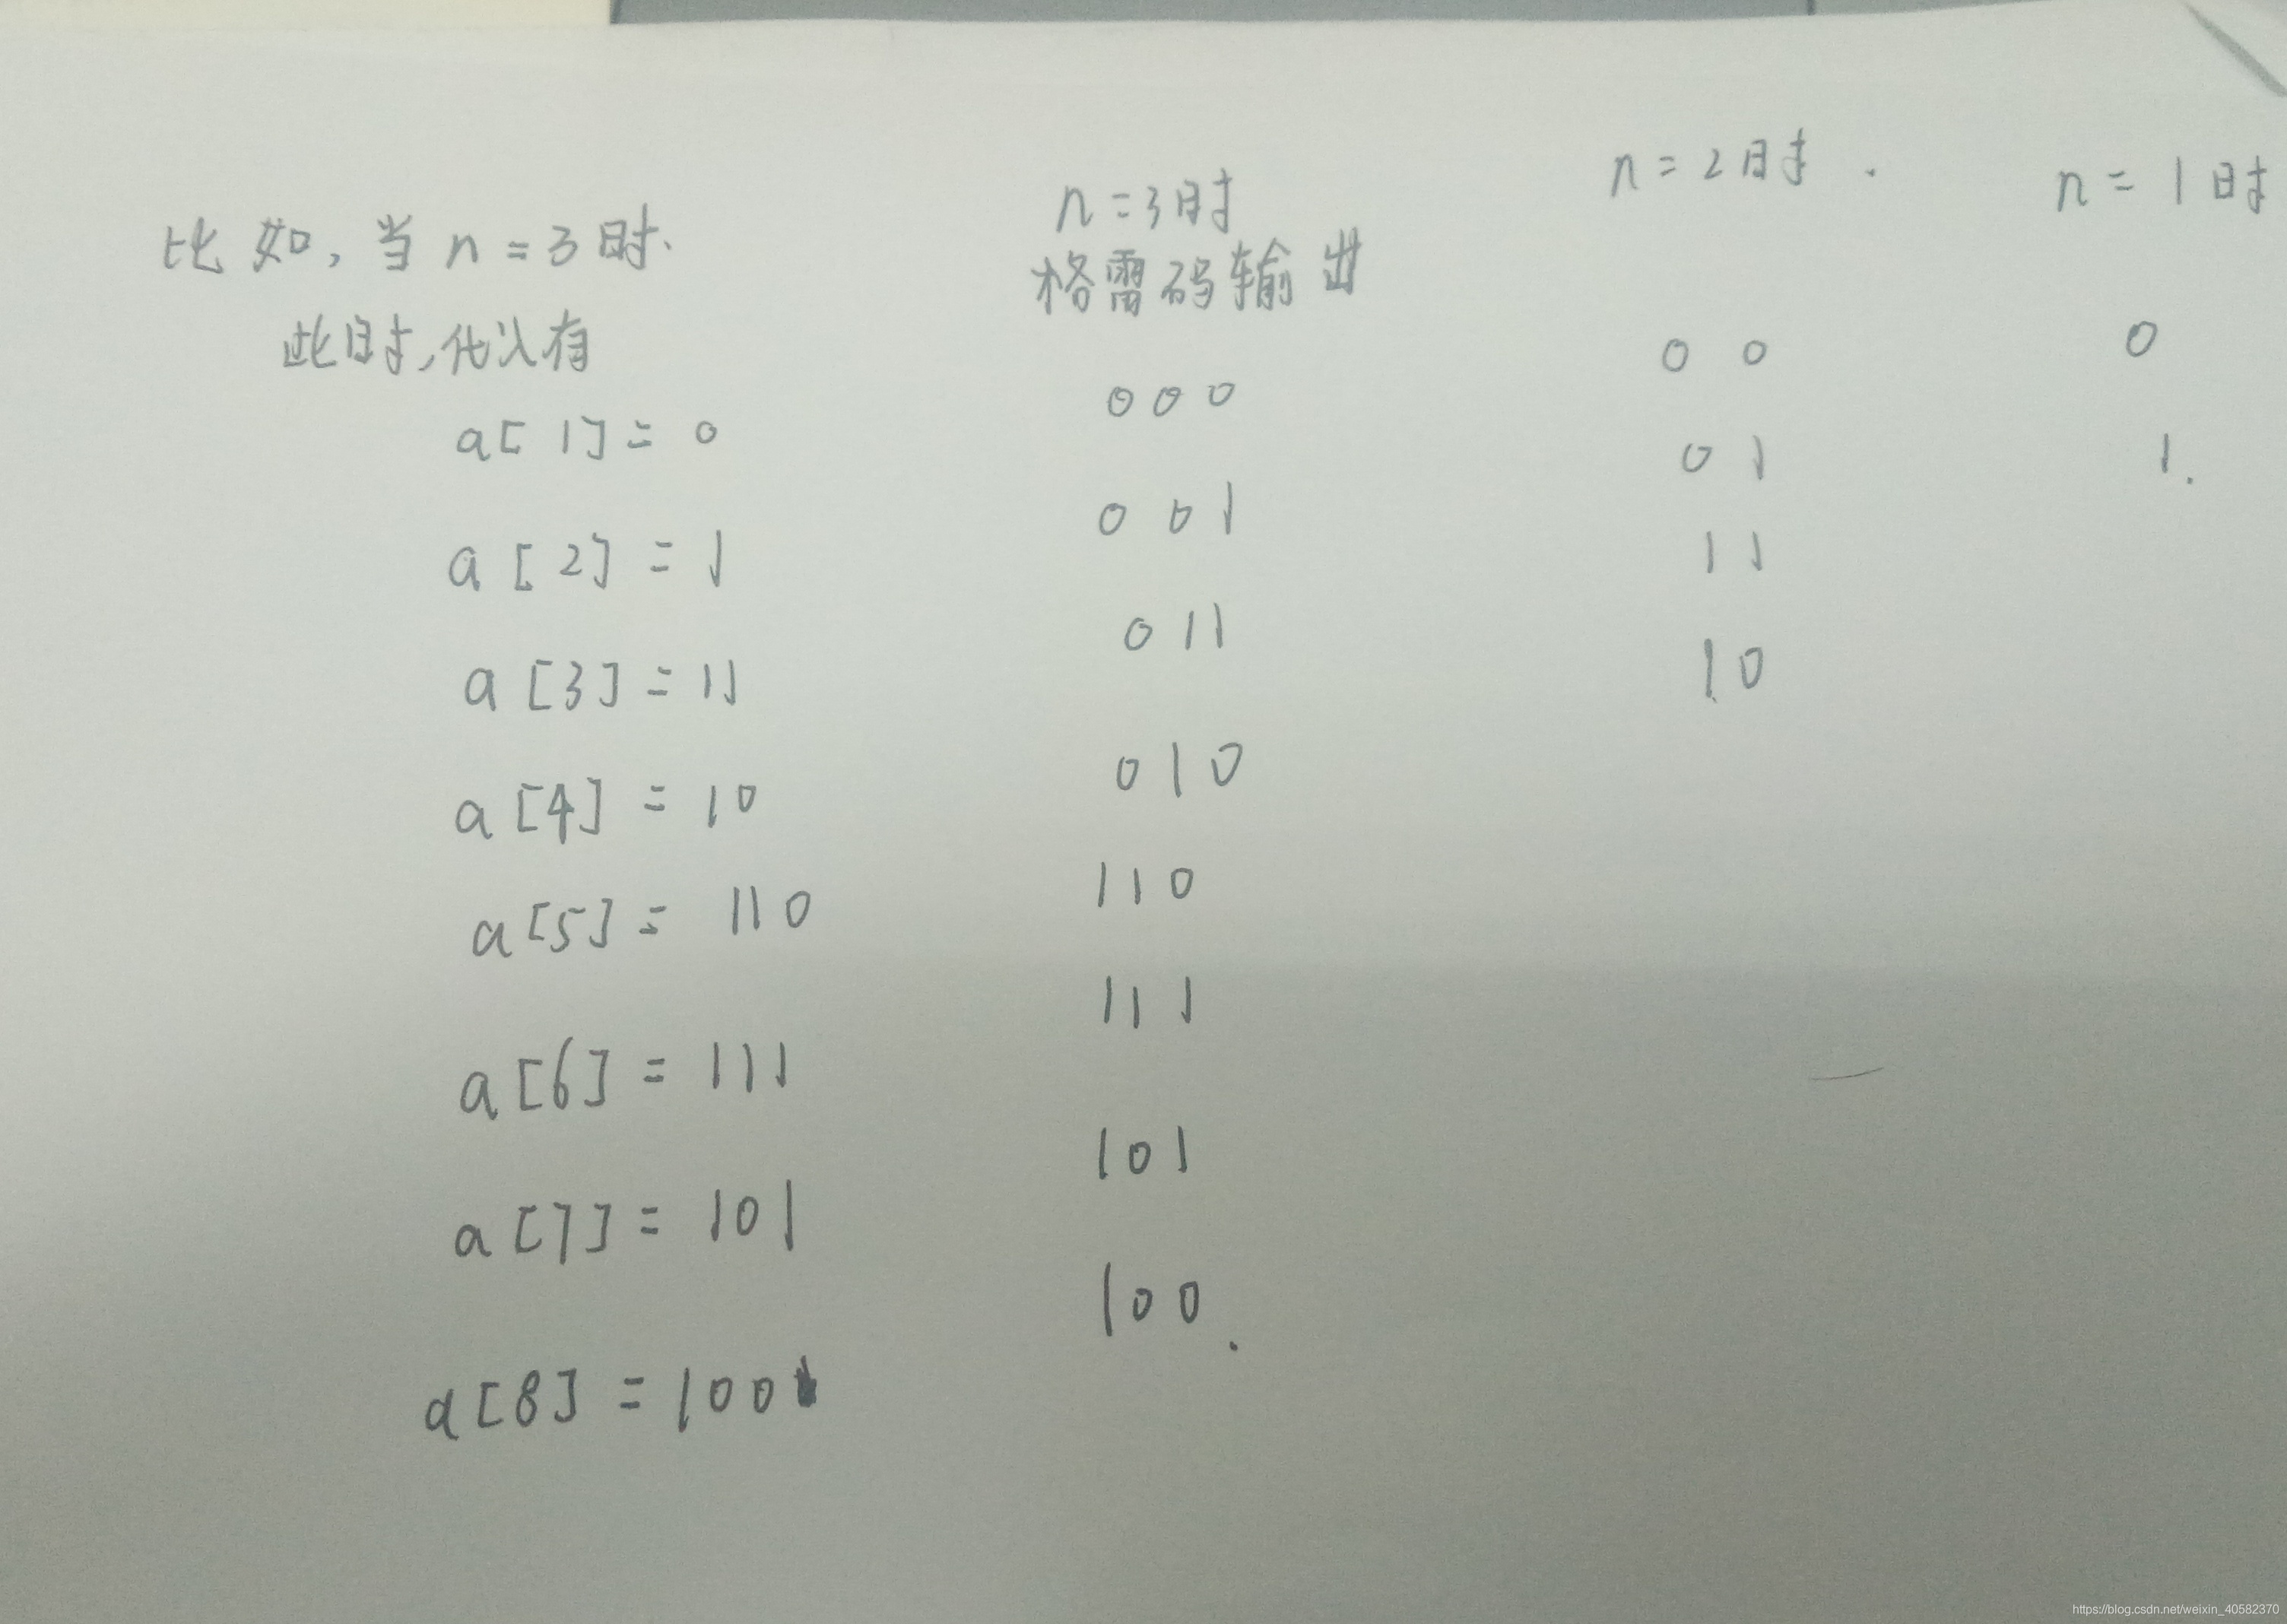 比如,当 n=3时.
此时,代入有
a[1]=0
a[2]=1
a[3]=11
a[4]=10
a[5]=110
a[6]=111
a[7]=101
a[8]=100
n=3时
格雷码输出
000
001
011
010
110
111
101
100.
n=2时.
00
01
11
10
n=1时
0
1.
https://blog.csdn.net/weixin_40582370